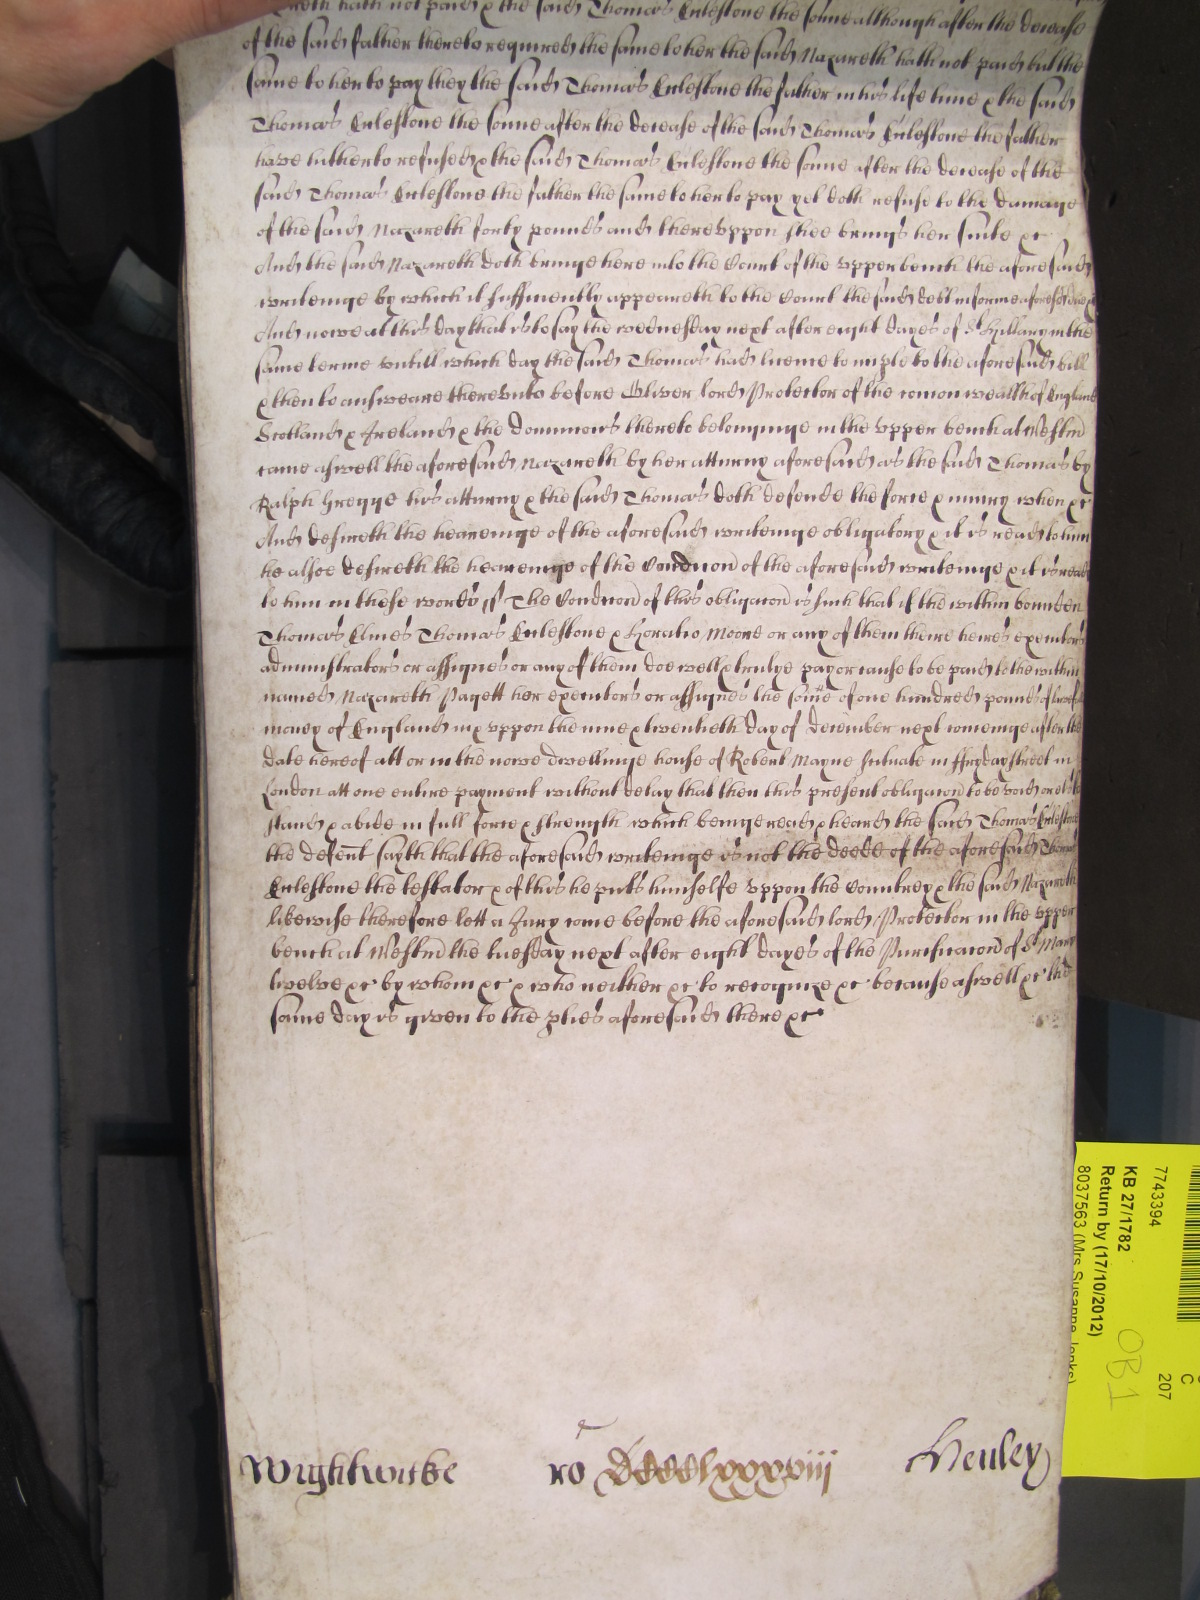 hath not paid & the said Thomas Ecclestone the sonne although after the decease
of the said father thereto required the same to her the said Nazareth hath not paid but the
same to her to pay they the said Thomas Ecclestone the father in his life time & the said
Thomas Ecclestone the sonne after the decease of the said Thomas Ecclestone the father
have hitherto refused & the said Thomas Ecclestone the sonne after the decease of the
said Thomas Ecclestone the father the same to her to pay yet doth refuse to the damage
of the said Nazareth forty pounds and thereuppon shee brings her suite &c
And the said Nazareth doth bringe here into the Court of the upper bench the aforesaid
writeinge by which it sufficiently appeareth to the Court the said debt in forme aforesaid
And nowe at this day that is to say the wednesday next after eight dayes of St Hillary in the
same terme untill which day the said Thomas had licence to imple to the aforesaid bill
& then to answeare thereunto before Oliver lord Protector of the comon wealth of England
Scotland & Ireland & the dominions thereto belonginge in the upper bench at Westm
came aswell the aforesaid Nazareth by her atturny aforesaid as the said Thomas by
Ralph Gregge his atturny & the said Thomas doth defende the force & iniury when &c
And desireth the heareinge of the aforesaid writeinge obligatory & it is read to him
he alsoe desireth the heareinge of the Condicon of the aforesaid writeinge & it is read
to him in these words ss The Condicon of this obligacon is such that if the within bounden
Thomas Elmes Thomas Ecclestone & Horatio Moore or any of them theire heires executors
administrators or assignes or any of them doe well & trulye pay or cause to be paid to the within
named Nazareth Pagett her executors or assignes the some of one hundred pounds of lawfull
money of England in & uppon the nine & twentieth day of december next comeinge after the
date hereof att or in the nowe dwellinge house of Robert Mayne scituate in ffryday street in
London att one entire payment without delay that then this present obligacon to be void or els to
stand & abide in full force & strength which beinge read & heard the said Thomas Eccleston
the defent sayth that the aforesaid writeinge is not the deede of the aforesaid Thomas
Ecclestone the testator & of this he puts himselfe uppon the Countrey & the said Nazareth
likewise therefore lett a Jury come before the aforesaid lord Protector in the upper
bench at Westm the tuesday next after eight dayes of the Purificacon of St Mary
twelve &c by whom &c & who neither &c to recognize &c because aswell &c the
same day is given to the pties aforesaid there &c
Wightwicke ro Dccclxxxviii Henley
7743394
KB 27/1782
Return by (17/10/2012)
8037563 (Mrs Susanne Jenks)
207
C
OB1